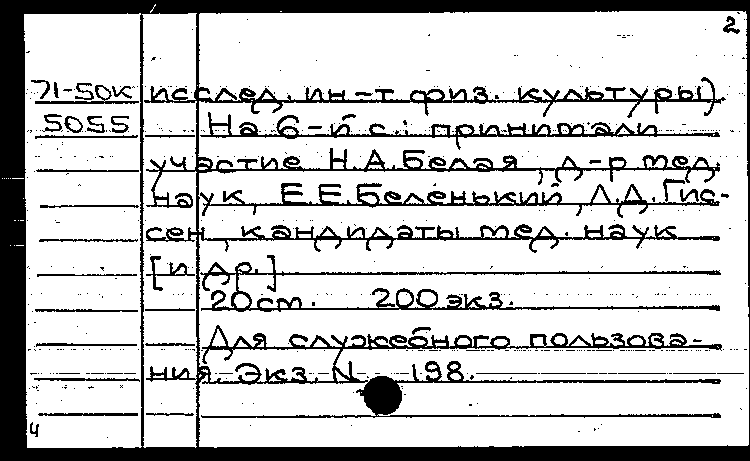 2
71-50К исслед. ин-т физ. культуры).
5055 На 6-й с.: принимали
участие Н.А.Белая, д-р мед.
наук, Е.Е.Беленький, Л.Д.Гис-
сен, кандидаты мед. наук
[и др.]
20 ст. 200 экз.
Для служебного пользова-
ния. Экз. N 198.
4